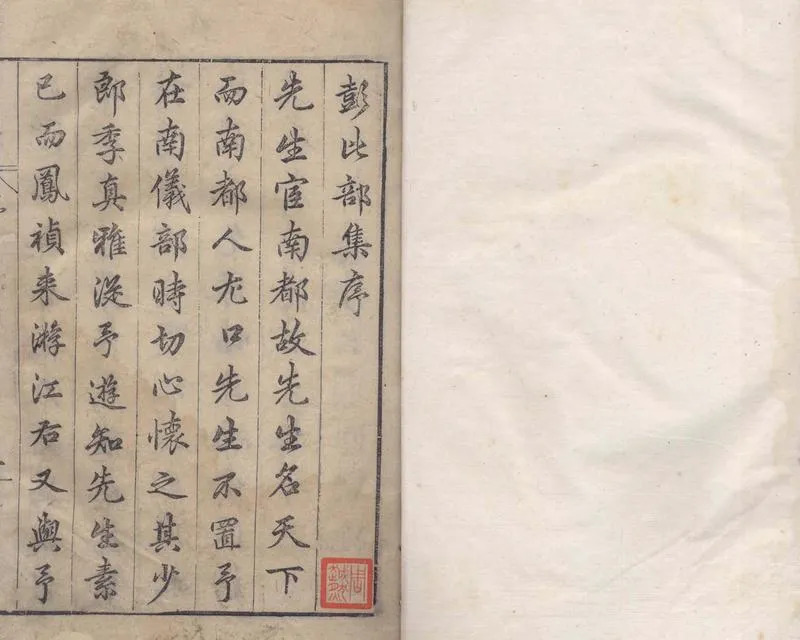 彭比部集序
先生宦南都故先生名天下
而南都人尤口先生不置予
在南儀部時切心懷之其少
郎季真雅從予遊知先生素
已而鳳禎来游江右又與予
周越然